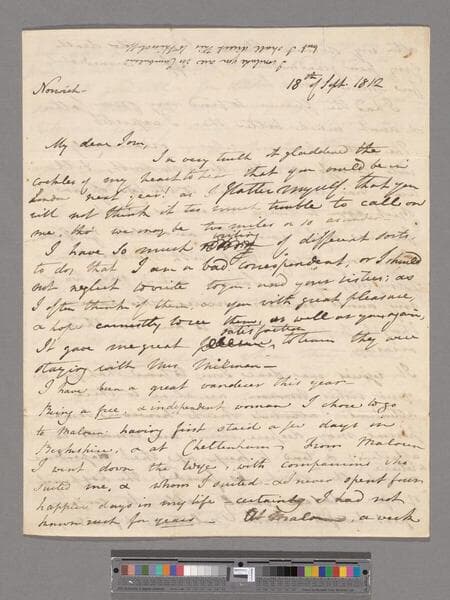 but I shall direct this to
I conclude you are in
Norwich
18th of Sept. 1812
My dear Tom,
In very truth it gladdened the
cockles of my heart to hear that you would be in
London next year! as I flatter myself, that you
will not think it too much trouble to call on
me, tho' we may be two miles or so asunder.
I have so much writing of different sorts
to do, that I am a bad correspondent, or I should
not neglect to write to you, and your sisters; as
I often think of them, & you with great pleasure,
& hope earnestly to see them, as well as you again,
It gave me great satisfaction to learn they were
staying with Mrs.
I have been a great wanderer this year
Being a free, & independent woman I chose to go
to Malvern having first staid a few days in
& at Cheltenham; from Malvern
I went down the Wye, with companions who
suited me, & whom I suited & never spent four
happier days in my life – certainly I had not
known such for years – At Malvern, a week